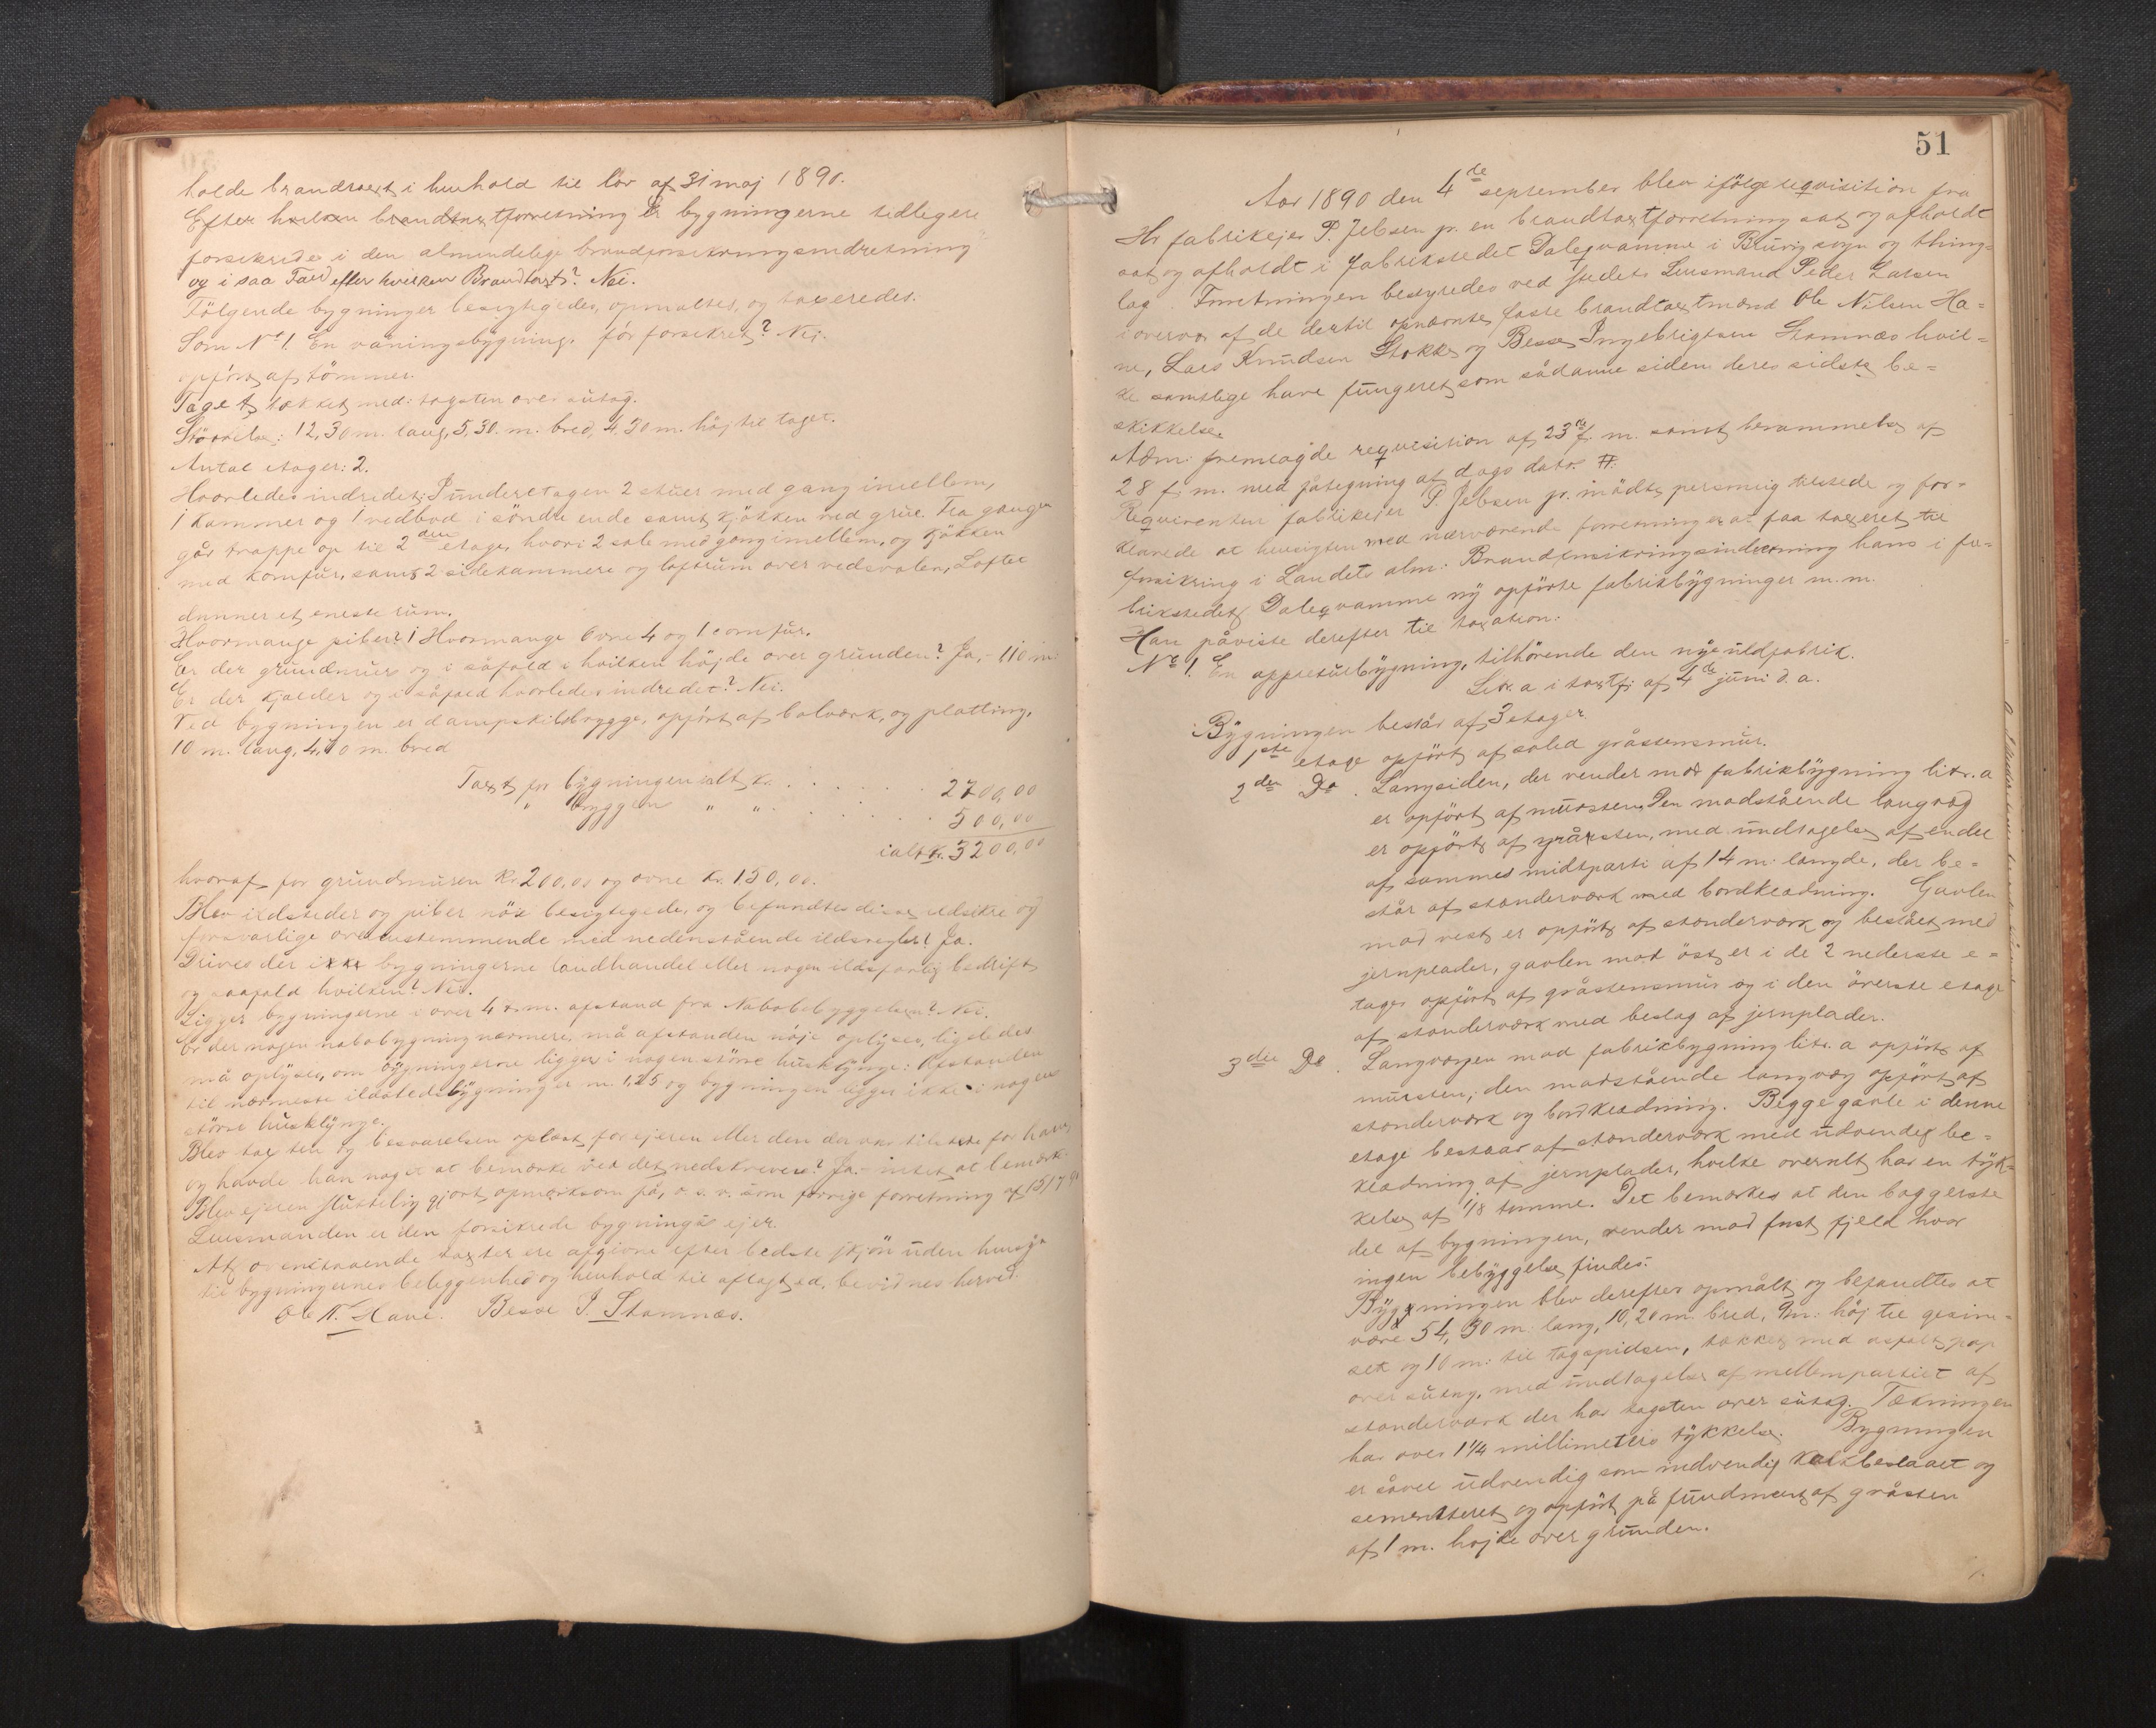 holde brandtaxt i henhold til lov af 31 maj 1890.
Efter hvilken brandtaxtforretning Er bygningerne tidligere
forsikrede i den almindelige brandforsikringsindretning
og i saa Fald efter hvilken Brandtaxt? Nei.
Følgende bygninger besigtigedes, opmaltes, og taxeredes:
Som No 1. En våningsbygning, før forsikret? Nei.
opført af tømmer.
Taget tækket med: tagsten over sutag.
Størrelse: 12,30 m. lang, 5,30. m. bred, 4.30 m. høj til taget.
Antal etager: 2.
Hvorledes indredet: I underetagen 2 stuer med gang imellem,
1 kammer og 1 vedbod i søndre ende samt kjøkken med grue. Fra gangen
går trappe op til 2den etage, hvori 2 sale med gang imellem, og kjøkken
med komfur, samt 2 sidekammere og loftrum over vedsvalen, Loftet
danner et eneste rum.
Hvormange piber? 1 Hvormange Ovne 4 og 1 comfur.
Er der grundmur og i såfald i hvilken højde over grunden? Ja, - 110 m:
Er der kjælder og i såfald hvorledes indredet? Nei.
Ved bygningen er dampskibsbrygge, opført af bolværk, og platting,
10 m. lang, 4,70 m. bred
Taxt for bygningen ialt kr. . . . . . . 2700,00
" bryggen " " . . . . . . 500,00
ialt kr. 3200,00
hvoraf for grundmuren kr 200,00 og ovne kr. 150,00.
Blev ildsteder og piber nøie besigtigede, og befandtes disse ildsikre og
forsvarlige overensstemmende med nedenstående ildsregler? Ja.
Drives der i bygningerne landhandel eller nogen ildsfarlig bedrift
og saafald hvilken? Nei.
Ligger bygningerne i over 4 m. afstand fra Nabobebyggelsen? Nei.
Er der nogen nabobygning nærmere, må afstanden nøje oplyses, ligeledes
må oplyses, om bygningerne ligger i nogen større husklynge: Afstanden
til nærmeste ildstedsbygning er m. 1,25 og bygningen ligger ikke i nogen
større husklynge.
Blev taxten og besvarelsen oplæst for ejeren eller den der var tilstede for ham,
og havde han noget at bemærke ved det nedskrevne? Ja, - intet at bemærke
Blev ejeren sluttelig gjort opmærksom på, o. s. v. som forrige forretning af 15/7 90
Lensmanden er den forsikrede bygnings ejer.
At ovenstaaende taxter ere afgivne efter bedste skjøn uden hensyn
til bygningernes beleggenhed og henhold til aflagt ed, bevidnes herved.
Ole N. Hane. Besse I. Stamnæs.
51
Aar 1890 den 4de september blev ifølge requisition fra
Hr fabrikejer P. Jebsen jr. en brandtaxtforretning sat og afholdt
sat og afholdt i fabrikstedet Daleqvamme i Bruvig sogn og thing-
lag. Forretningen bestyredes ved stedets Lensmand Peder Larsen
i overvær af de dertil opnævnte faste brandtaxtmænd Ole Nilsen Ha-
ne, Lars Knudsen Stokke og Besse Ingebrigtsen Stamnæs hvil-
ke samtlige have fungeret som sådanne siden deres sidste be-
skikkelse.
Adm: fremlagde requisition af 23de f. m. samt berammelse af
28 f. m. med påtegning af dags dato. #:
Requirenten fabrikejer P. Jebsen jr. mødte personlig tilstede og for-
klarede at hensigten med nærværende forretning er at faa taxeret til
forsikring i Landets alm: Brandforsikringsindretning hans i fa-
brikstedet Daleqvamme ny opførte fabrikbygninger m. m.
Han påviste derefter til taxation:
No 1. En appreturbygning, tilhørende den nye uldfabrik.
Litr. a i taxtf: af 4de juni d. a.
Bygningen består af 3 etager
1ste etage opført af solid gråstensmur.
2den Do. Langsiden, der vender mod fabrikbygning litr. a
er opført af mursten. Den modstående langvæg
er opført af gråsten, med undtagelse af endel
af sammes midtparti af 14 m: længde, der be-
står af standerværk med bordklædning. Gavlen
mod vest er opført af standerværk og beslået med
jernplader, gavlen mod øst er i de 2 nederste e-
tager opført af gråstensmur og i den øverste etage
af standerværk med beslag af jernplader.
3die Do. Langvæggen mod fabrikbygning litr. a opført af
mursten; den modstående langvæg opført af
standerværk og bordklædning. Begge gavle i denne
etage bestaar af standerværk med udvendig be-
klædning af jernplader, hvilke overalt har en tyk-
kelse af 1/8 tomme. Det bemærkes at den baggerste
del af bygningen, vender mod fast fjeld hvor
ingen bebyggelse findes.
Bygningen blev derefter opmålt og befandtes at
være 54,30 m. lang, 10,20 m. bred, 9m: høj til gesim-
set og 10 m: til tagspidsen, tækket med asfaltpap
over sutag, med undtagelse af mellempartiet af
standerværk der har tagsten over sutag. Tækningen
har over 1 1/4 millimeters tykkelse. Bygningen
er såvel udvendig som indvendig kalkbeslaaet og
sementeret og opført på fundment af gråsten
af 1 m. højde over grunden.